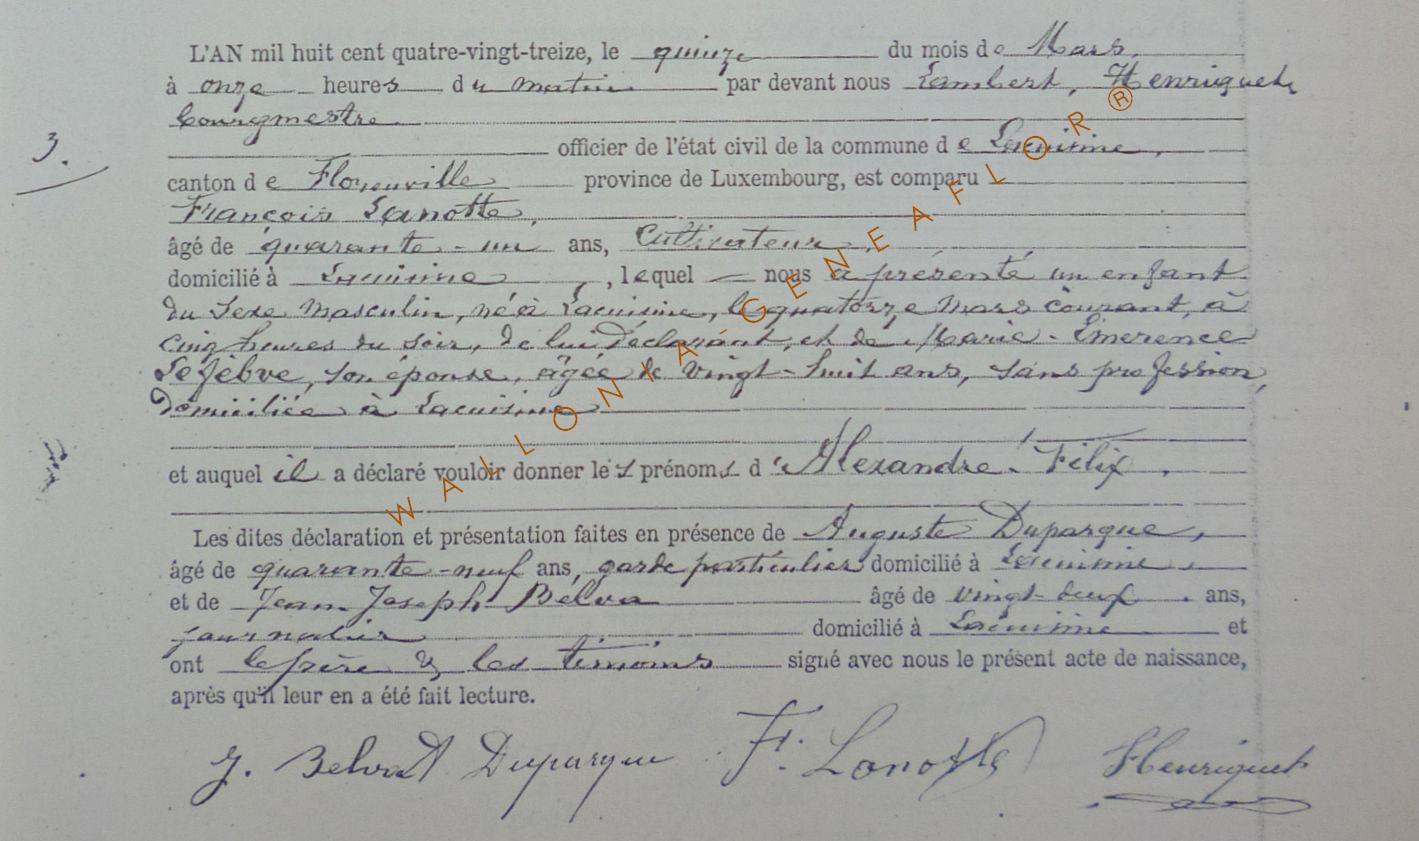 L'AN mil huit cent quatre-vingt-treize, le quinze du mois de Mars,
à onze heures du matin par devant nous Lambert, Henriquet,
bourgmestre
officier de l'état civil de la commune de Lacuisine,
3.
canton de Florenville province de Luxembourg, est comparu
François Lanotte,
âgé de quarante-un ans, Cultivateur,
domicilié à Lacuisine, lequel nous a présenté un enfant
du sexe masculin, né à Lacuisine, le quatorze Mars courant, à
cinq heures du soir, de lui déclarant, et de Marie-Emerence
Lefèbve, son épouse, âgée de vingt-huit ans, sans profession,
domiciliée à Lacuisine
et auquel il a déclaré vouloir donner les prénoms d'Alexandre-Félix,
Les dites déclaration et présentation faites en présence de Auguste Duparque,
âgé de quarante-neuf ans, garde particulier domicilié à Lacuisine,
et de Jean Joseph Belva âgé de vingt-deux ans,
journalier domicilié à Lacuisine et
ont le père & les témoins signé avec nous le présent acte de naissance,
après qu'il leur en a été fait lecture.
J. Belva A Duparque F. Lanotte Henriquet
WALLONIA GENEAFLOR®